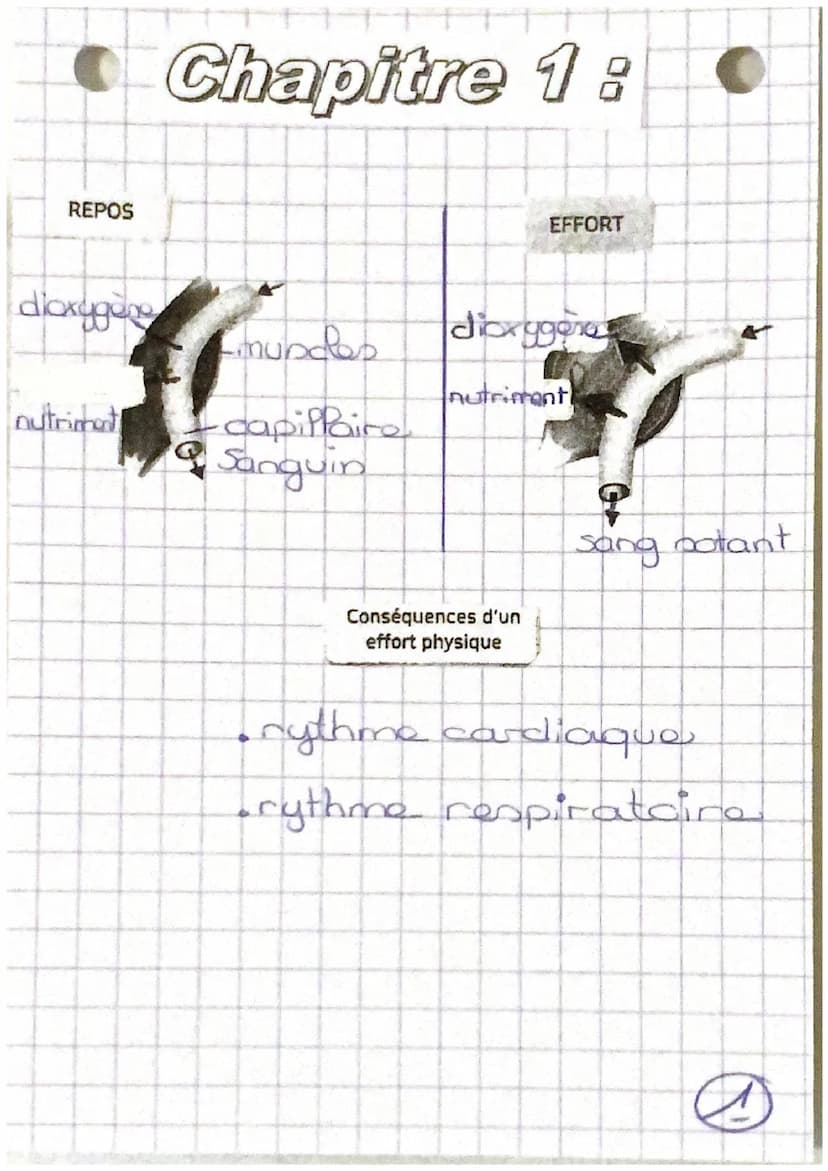 Chapitre 1 :
REPOS
dioxygène
muscles
nutriment
capillaire
Sanguin
EFFORT
dioxygène
nutriment
sang sotant
Conséquences d'un
effort physique
. rythme cardiaque
. rythme respiratoire
1